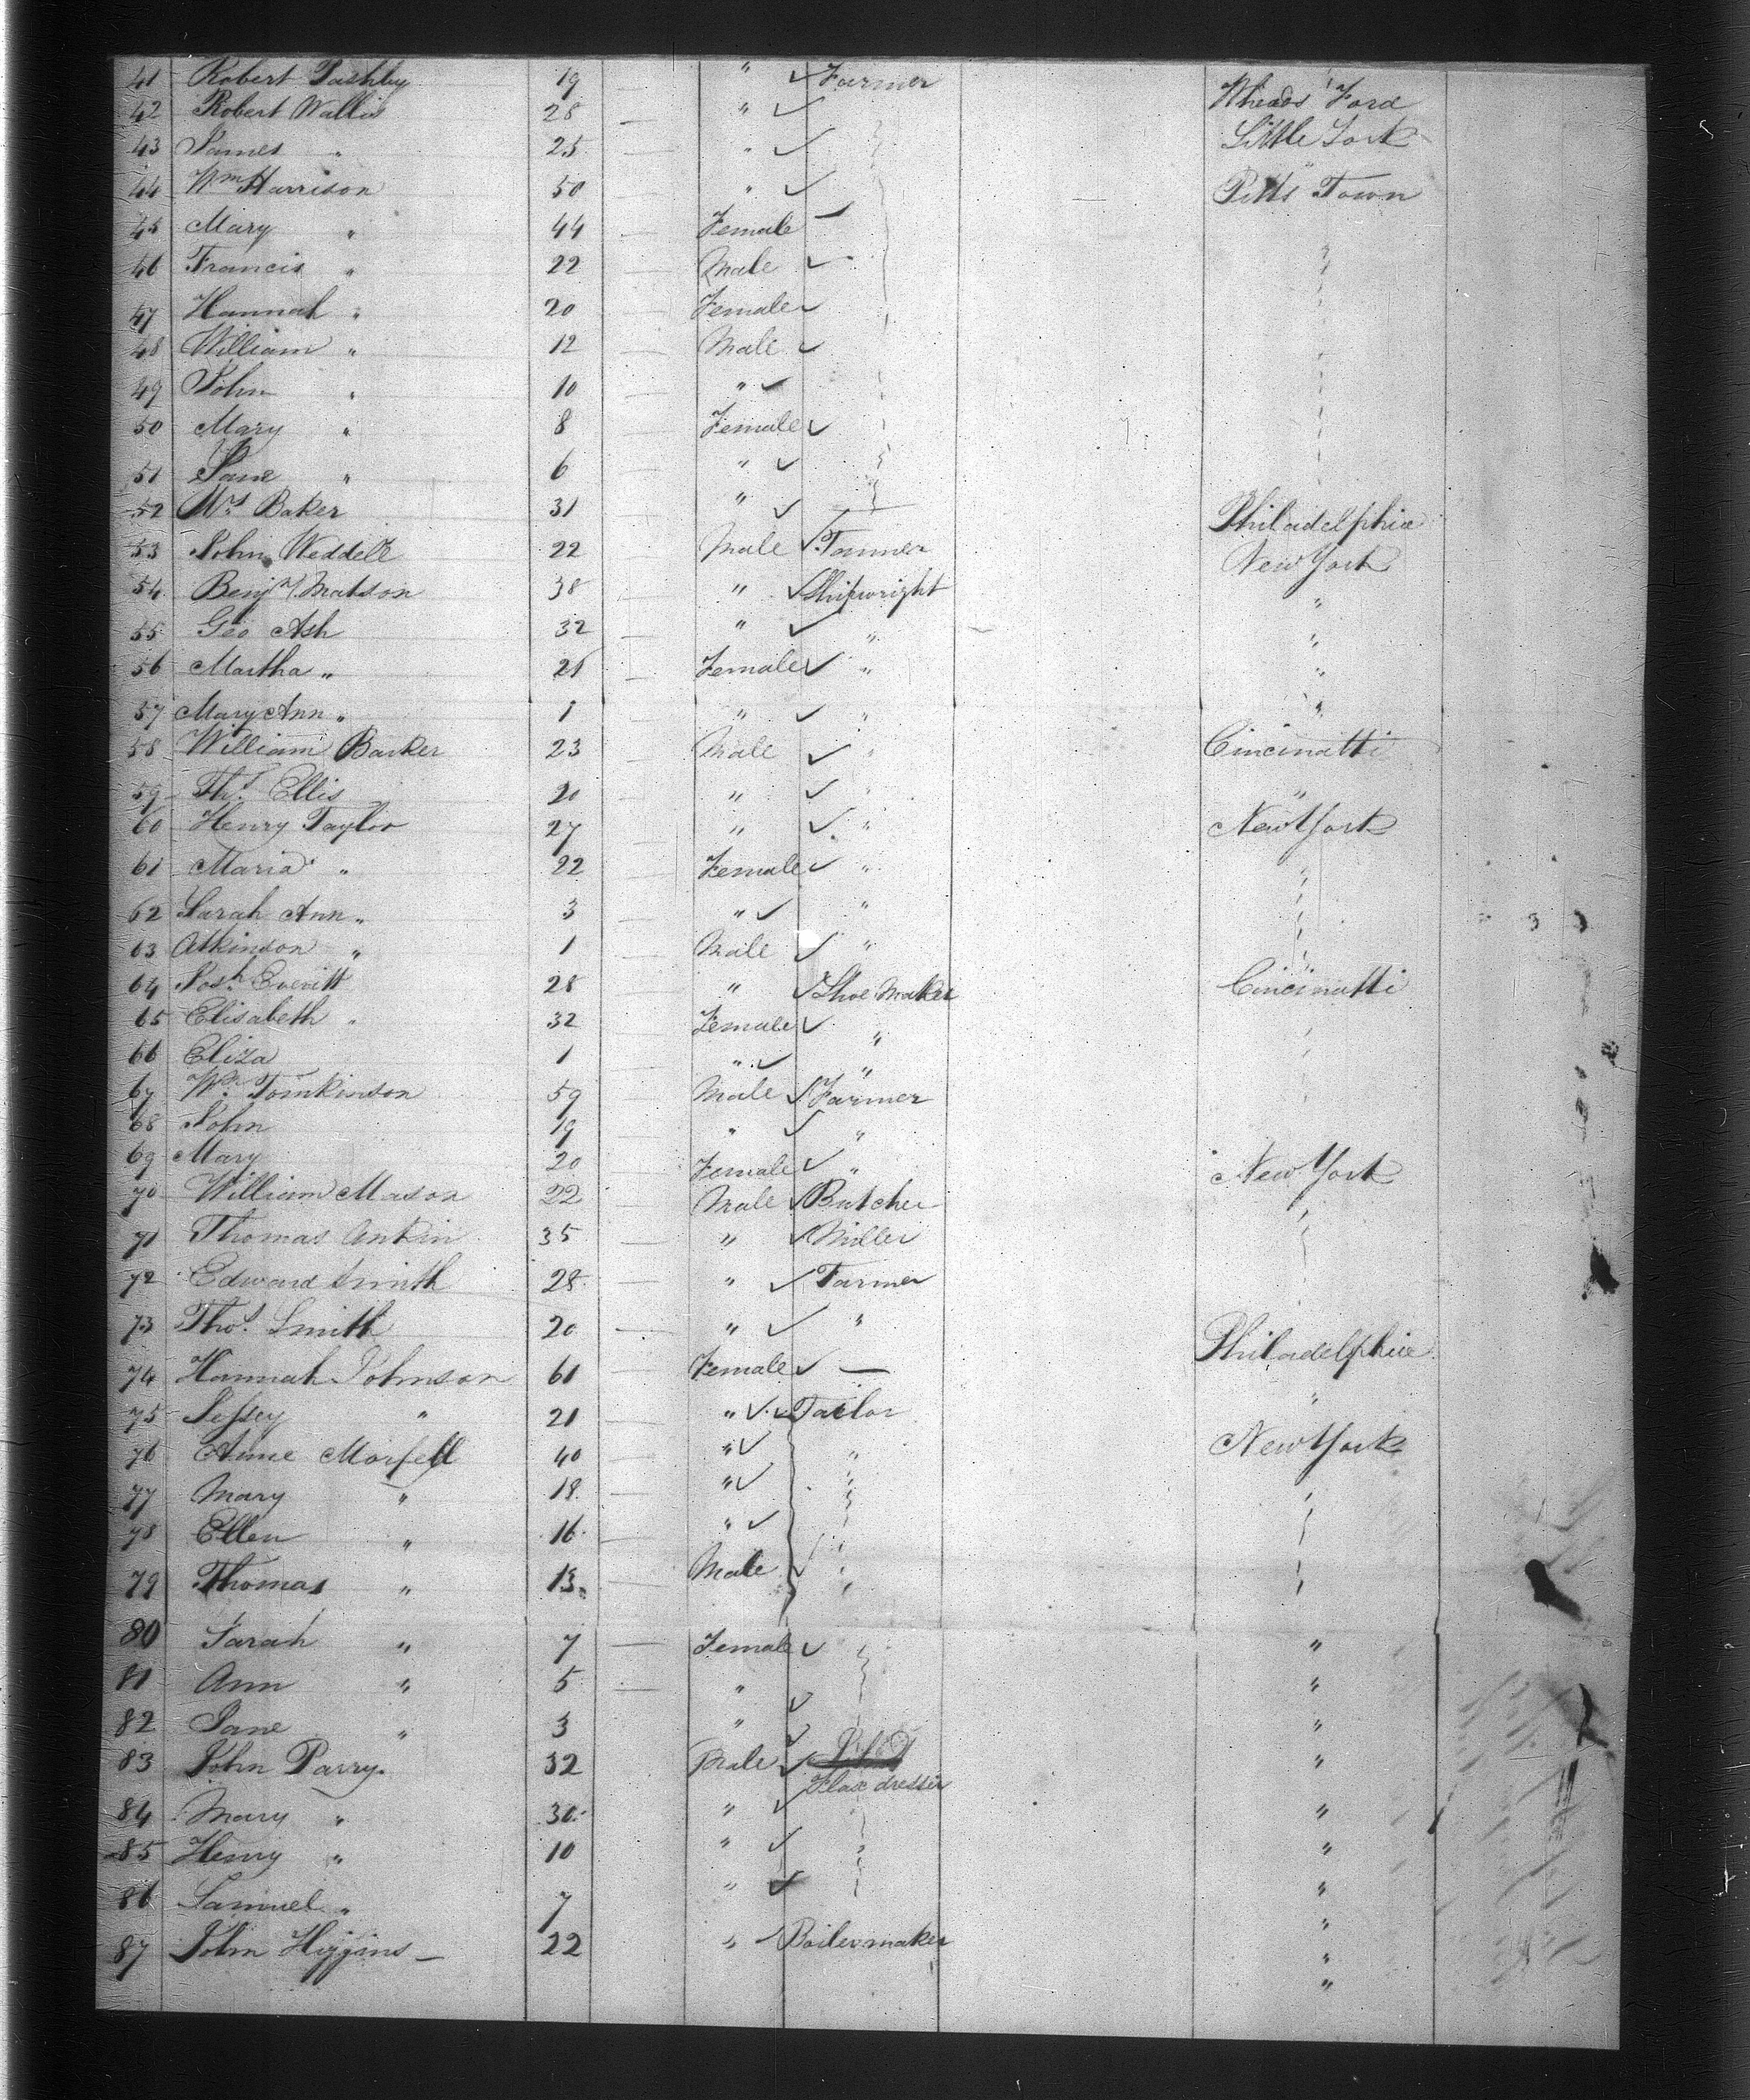 41 Robert Pashby 19 " Farmer Wheads Ford
42 Robert Wallis 28 " Little York
43 James " 25 " "
44 Wm Harrison 50 " Pitts Town
45 Mary " 44 Female
46 Francis " 22 Male "
47 Hannah " 20 Female "
48 William " 12 Male "
49 John " 10 " "
50 Mary " 8 Female "
51 Jane " 6 " "
52 Mrs Baker 31 " Philadelphia
53 John Weddell 22 Male Tanner New York
54 Benjn Matson 38 " Shipwright "
55 Geo Ash 32 " " "
56 Martha " 21 Female " "
57 Mary Ann " 1 " " "
58 William Barker 23 Male " Cincinatti
59 Ths Ellis 20 " " "
60 Henry Taylor 27 " " New York
61 Maria " 22 Female " "
62 Sarah Ann " 3 " " "
63 Atkinson " 1 Male " "
64 Josh Everitt 28 " Shoe Maker Cincinatti
65 Elisabeth " 32 Female " "
66 Eliza 1 " " "
67 Wm Tomkinson 59 Male Farmer "
68 John 19 " "
69 Mary 20 Female " New York
70 William Mason 22 Male Butcher "
71 Thomas Ankin 35 " Miller "
72 Edward Smith 28 " Farmer
73 Thos Smith 20 " " Philadelphia
74 Hannah Johnson 61 Female —
75 Jessey " 21 " Tailor "
76 Anne Morfell 40 " " New York
77 Mary " 18 " " "
78 Ellen " 16 " " "
79 Thomas " 13 Male " "
80 Sarah " 7 Female "
81 Ann " 5 " "
82 Jane " 3 " "
83 John Parry 32 Male Flax dresser "
84 Mary " 30 " "
85 Henry " 10 " "
86 Samuel " 7 " "
87 John Higgins — 22 " Boilermaker "
"